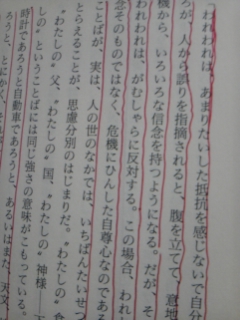 われわれは、あまりたいした抵抗を感じないで自分
ろが、人から誤りを指摘されると、腹を立てて、意地
機から、いろいろな信念を持つようになる。だが、そ
われわれは、がむしゃらに反対する。この場合、われ
念そのものではなく、危機にひんした自尊心なのであ
ことばが、実は、人の世のなかでは、いちばんたいせつ
とらえることが、思慮分別のはじまりだ。〝わたしの〟
〝わたしの〟父、〝わたしの〟国、〝わたしの〟神様―
しの〟ということばには同じ強さの意味がこもっている。
時計であろうと自動車であろうと、あるいはまた、天文
ろうと、とにかく、